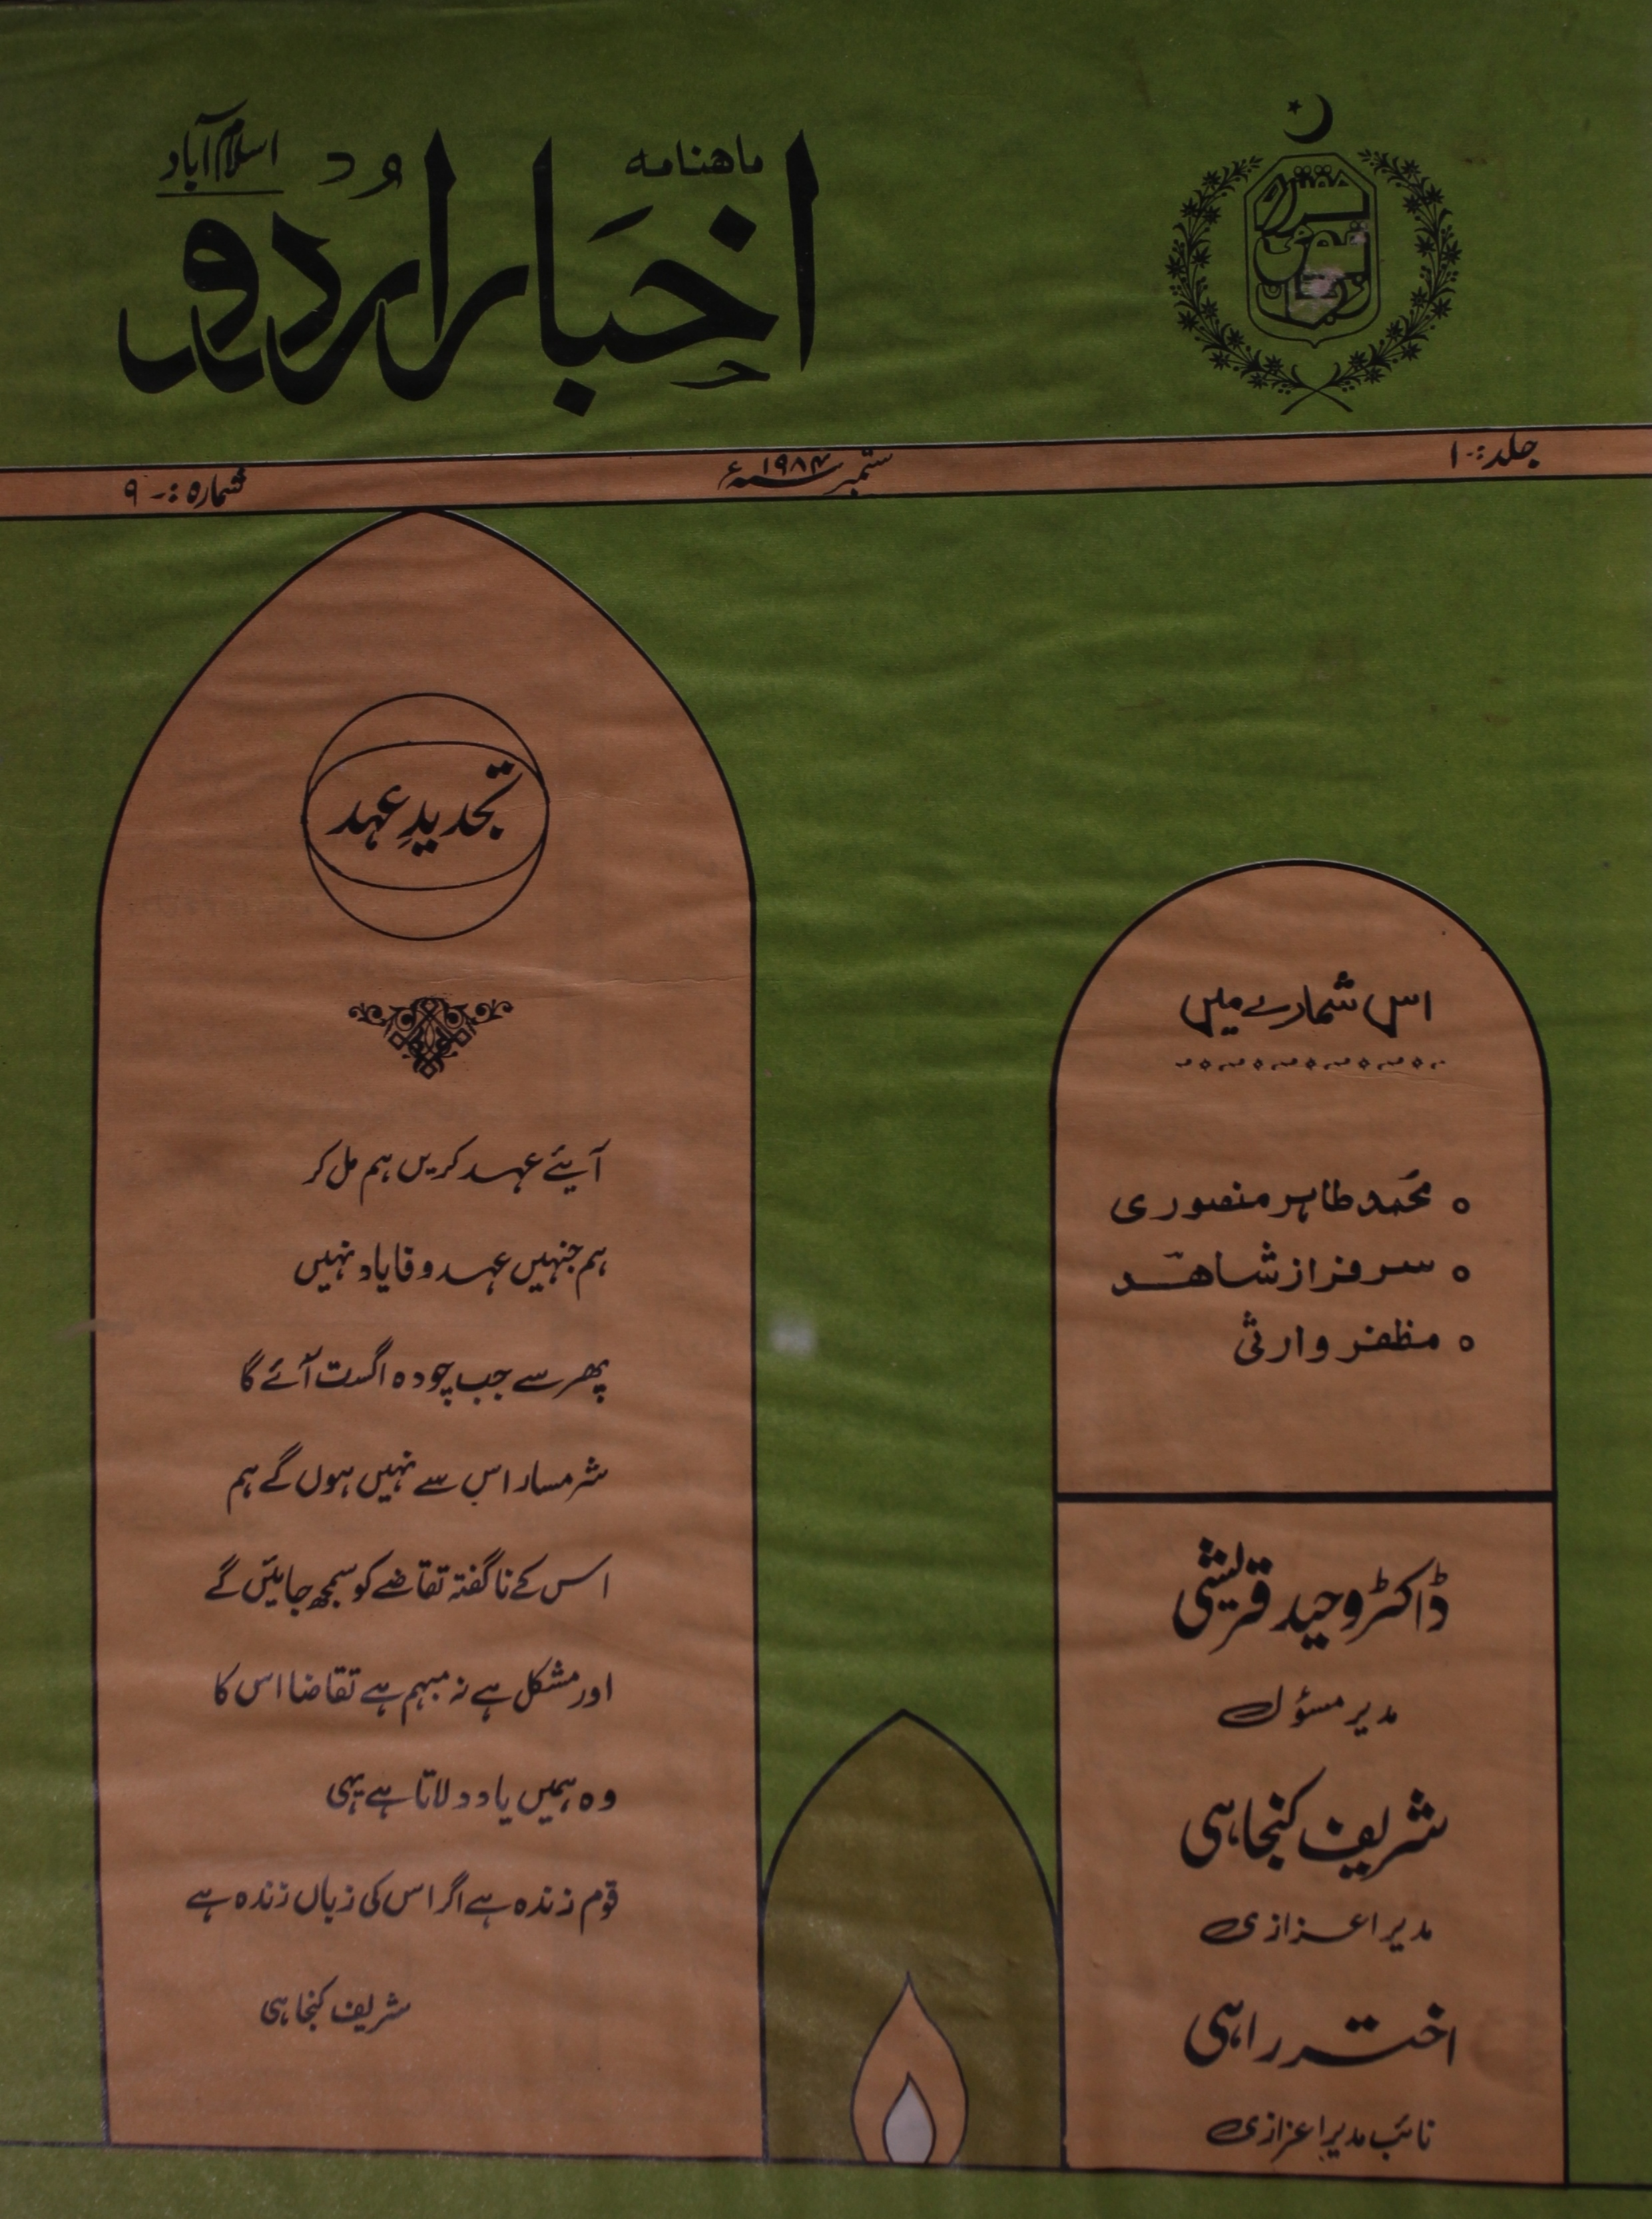 مقتدرہ
قومی
زبان
ماھنامہ
اسلام آباد
اخبارِ اردو
جلد:۔ ۱
ستمبر ۱۹۸۴ء
شمارہ:۔ ۹
تجدیدِ عہد
آیئے عہد کریں ہم مل کر
ہم جنہیں عہد وفا یاد نہیں
پھر سے جب چودہ اگست آئے گا
شرمسار اس سے نہیں ہوں گے ہم
اس کے ناگفتہ تقاضے کو سمجھ جائیں گے
اور مشکل ہے نہ مبہم ہے تقاضا اس کا
وہ ہمیں یاد دلاتا ہے یہی
قوم زندہ ہے اگر اس کی زباں زندہ ہے
شریف کنجاہی
اس شمارے میں
محمد طاہر منصوری
سرفراز شاھد
مظفر وارثی
ڈاکٹر وحید قریشی
مدیر مسؤل
شریف کنجاہی
مدیر اعزازی
اختر راہی
نائب مدیر اعزازی